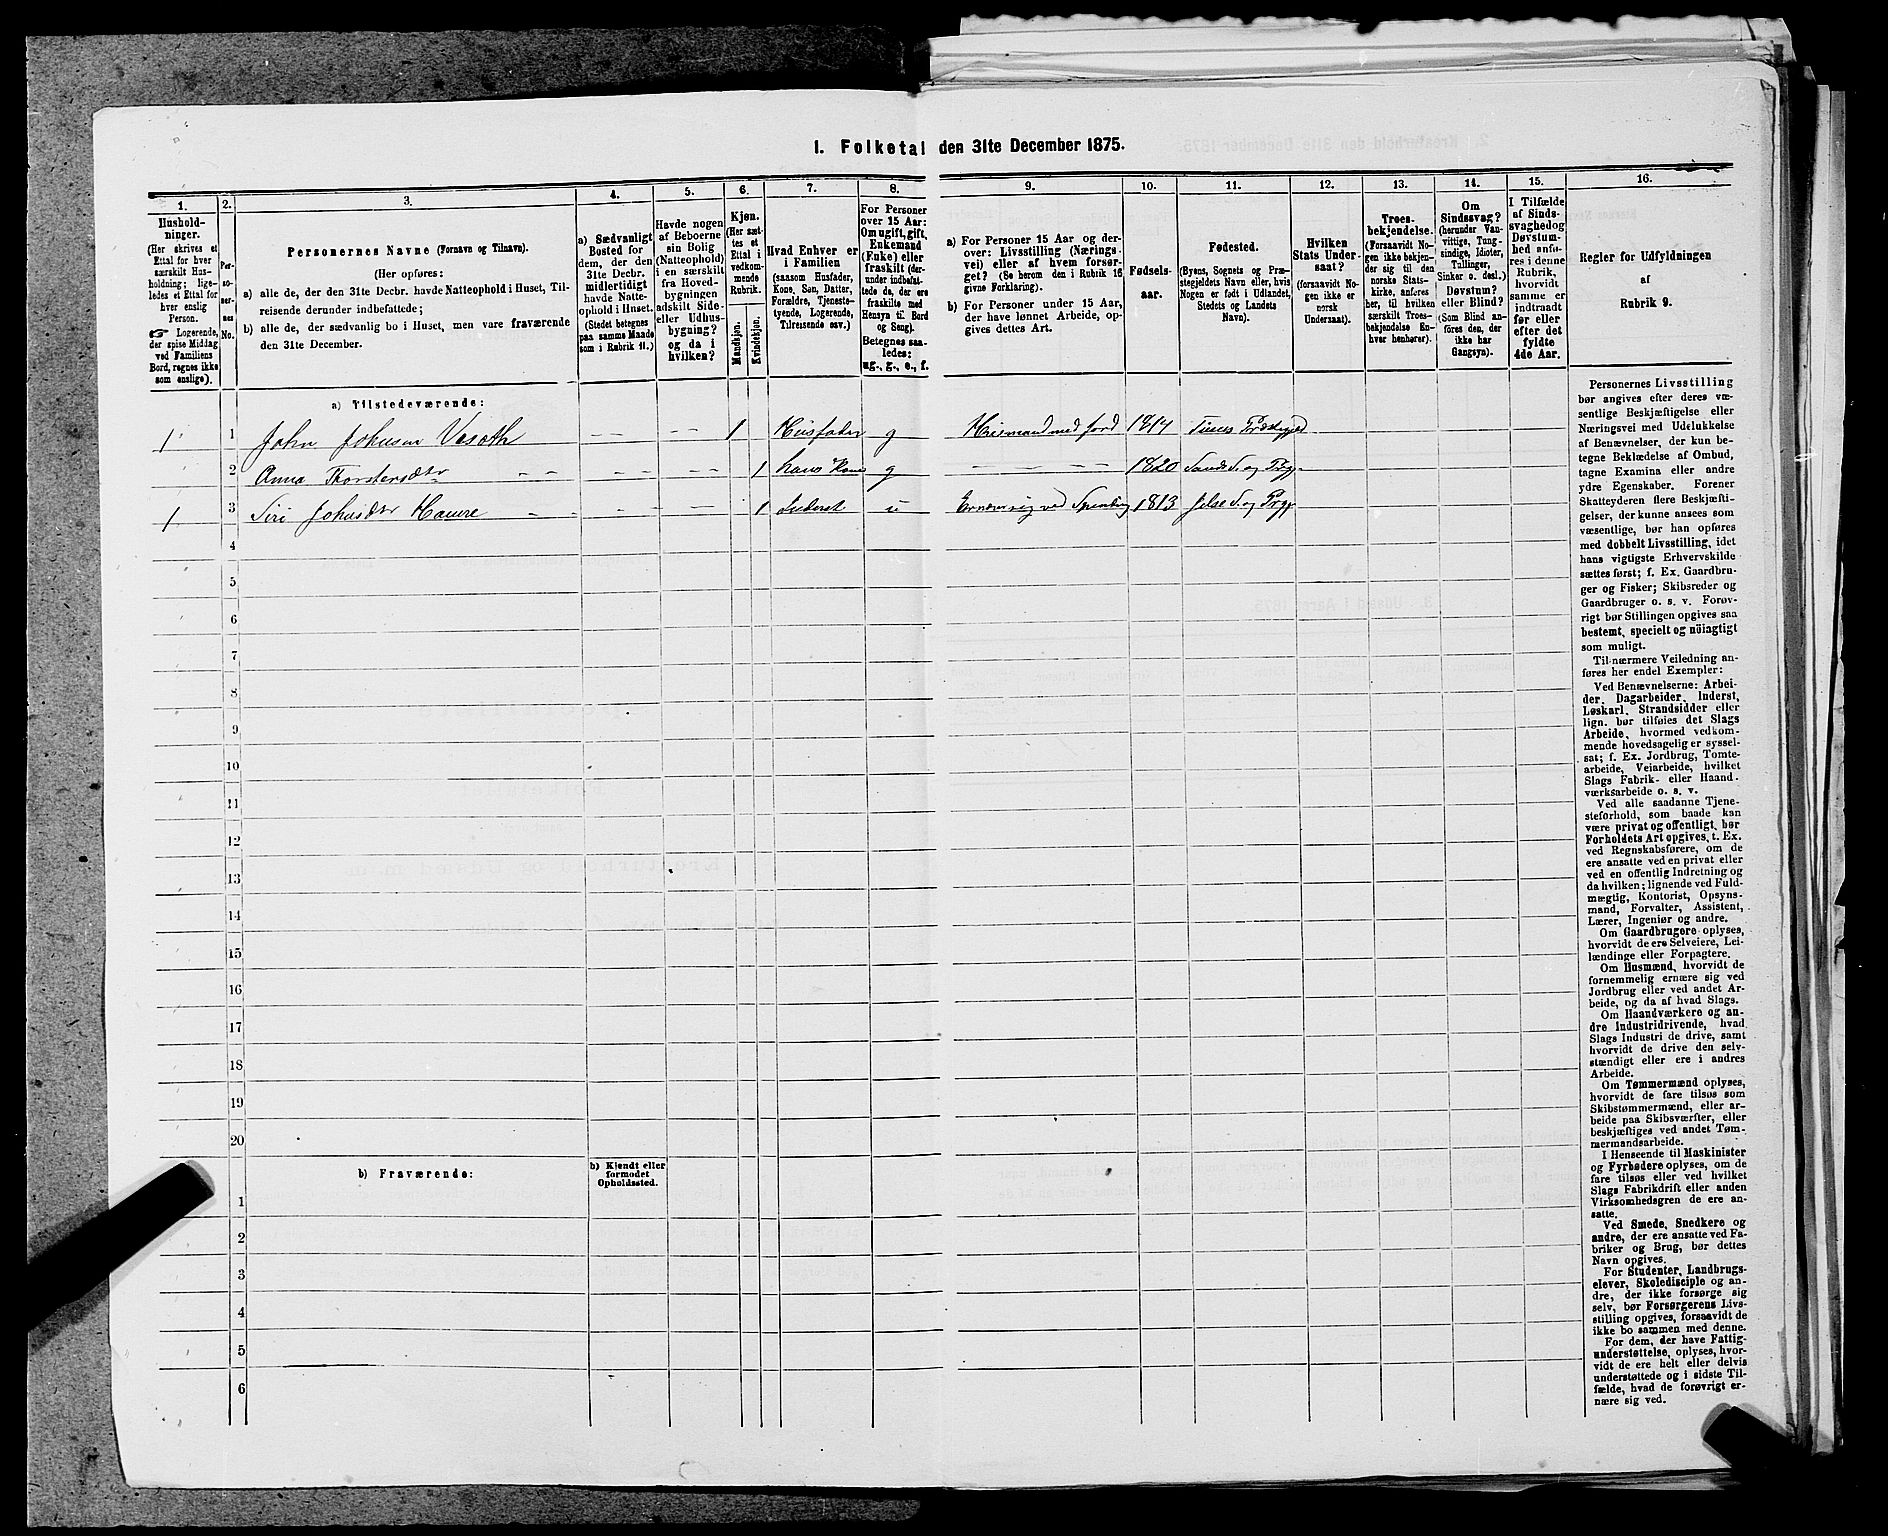 1. Folketal den 31te December 1875.
1. 2. 3. 4. 5. 6. 7. 8. 9. 10. 11. 12. 13. 14. 15. 16.
Hushold-
ninger.
(Her skrives et
Ettal for hver
særskilt Hus-
holdning; lige-
ledes et Ettal for
hver enslig
Person.
☞ Logerende,
der spise Middag
ved Familiens
Bord, regnes ikke
som enslige).
Per-
so-
ner-
nes
No.
Personernes Navne (Fornavn og Tilnavn).
(Her opføres:
a) alle de, der den 31te Decbr. havde Natteophold i Huset, Til-
reisende derunder indbefattede;
b) alle de, der sædvanlig bo i Huset, men vare fraværende
den 31te December.
a) Sædvanligt
Bosted for
dem, der den
31te Decbr.
midlertidigt
havde Natte-
ophold i Huset.
(Stedet betegnes
paa samme Maade
som i Rubrik 11.)
Havde nogen
af Beboerne
sin Bolig
(Natteophold)
i en særskilt
fra Hoved-
bygningen
adskilt Side-
eller Udhus-
bygning?
og da i
hvilken?
Kjøn.
(Her sæt-
tes et
Ettal i
vedkom-
mende
Rubrik.
Mandkjøn.
Kvindekjøn.
Hvad Enhver er
i Familien
(saasom Husfader,
Kone, Søn, Datter,
Forældre, Tjeneste-
tyende, Logerende,
Tilreisende osv.)
For Personer
over 15 Aar:
Om ugift, gift,
Enkemand
(Enke) eller
fraskilt (der-
under indbefat-
tede de, der ere
fraskilte med
Hensyn til Bord
og Seng).
Betegnes saa-
ledes:
ug., g., e., f.
a) For Personer 15 Aar og der-
over: Livsstilling (Nærings-
vei) eller af hvem forsør-
get? (Se herom den i Rubrik 16
givne Forklaring).
b) For Personer under 15 Aar,
der have lønnet Arbeide, op-
gives dettes Art.
Fødsels-
aar.
Fødested.
(Byens, Sognets og Præ-
stegjeldets Navn eller, hvis
Nogen er født i Udlandet,
Stedets og Landets
Navn).
Hvilken
Stats Under-
saat?
(forsaavidt No-
gen ikke er
norsk
Undersaat).
Troes-
bekjendelse.
(Forsaavidt No-
gen ikke bekjen-
der sig til den
norske Stats-
kirke, anføres
her, til hvilken
særskilt Troes-
bekjendelse En-
hver henhører).
Om
Sindssvag?
(herunder Van-
vittige, Tung-
sindige, Idioter,
Tullinger,
Sinker o. desl.)
Døvstum?
eller Blind?
(Som Blind an-
føres den, der
ikke har
Gangsyn).
I Tilfælde
af Sinds-
svaghed og
Døvstum-
hed anfø-
res i denne
Rubrik,
hvorvidt
samme er
indtraadt
før eller
efter det
fyldte
4de Aar.
Regler for Udfyldningen
af
Rubrik 9.
a) Tilstedeværende:
1 1 John Johnsen Vasoth — — 1 Husfader g Husmand med Jord 1814 Præstegjed
2 Anna Thorstensdtr — — 1 hans Kone g — — 1820 Sands S. og Prgj.
1 3 Siri Johnsdtr Haure — — 1 Inderst u Ernærer sig ved Spinding 1813 Jelse S. og Prgj.
4
5
6
7
8
9
10
11
12
13
14
15
16
17
18
19
20
b) Fraværende: b) Kjendt eller
formodet
Opholdssted.
1
2
3
4
5
6
Personernes Livsstilling
bør angives efter deres væ-
sentlige Beskjæftigelse eller
Næringsvei med Udelukkelse
af Benævnelser, der kun be-
tegne Beklædelse af Ombud,
tagne Examina eller andre
ydre Egenskaber. Forener
Skatteyderen flere Beskjæfti-
gelser, der kunne ansees som
væsentlige, bør han opføres
med dobbelt Livsstilling, idet
hans vigtigste Erhvervskilde
sættes først; f. Ex. Gaardbru-
ger og Fisker; Skibsreder og
Gaardbruger o. s. v. Forøv-
rigt bør Stillingen opgives saa
bestemt, specielt og nöiagtigt
som muligt.
Til nærmere Veiledning an-
føres her endel Exempler:
Ved Benævnelserne: Arbei-
der, Dagarbeider, Inderst,
Løskarl, Strandsidder eller
lign. bør tilføies det Slags
Arbeide, hvormed vedkom-
mende hovedsagelig er syssel-
sat; f. Ex. Jordbrug, Tomte-
arbeide, Veiarbeide, hvilket
Slags Fabrik- eller Haand-
værksarbeide o. s. v.
Ved alle saadanne Tjene-
steforhold, som baade kan
være privat og offentligt, bør
Forholdets Art opgives, t. Ex.
ved Regnskabsførere, om de
ere ansatte ved en privat eller
ved en offentlig Indretning og
da hvilken; lignende ved Fuld-
mægtig, Kontorist, Opsyns-
mand, Forvalter, Assistent,
Lærer, Ingeniør og andre.
Om Gaardbrugere oplyses,
hvorvidt de ere Selveiere, Lei-
lændinge eller Forpagtere.
Om Husmænd, hvorvidt de
fornemmelig ernære sig ved
Jordbrug eller ved andet Ar-
beide, og da af hvad Slags.
Om Haandværkere og an-
dre Industridrivende, hvad
Slags Industri de drive, samt
hvorvidt de drive den selv-
stændigt eller ere i andres
Arbeide.
Om Tømmermænd oplyses,
hvorvidt de fare tilsøs som
Skibstømmermænd, eller ar-
beide paa Skibsværfter, eller
beskjæftiges ved andet Tøm-
mermandsarbeide.
I Henseende til Maskinister
og Fyrbødere oplyses, om de
fare tilsøs eller ved hvilket
Slags Fabrikdrift eller anden
Virksomhedsgren de ere an-
satte.
Ved Smede, Snedkere og
andre, der ere ansatte ved Fa-
briker og Brug, bør dettes
Navn opgives.
For Studenter, Landbrugs-
elever, Skoledisciple og an-
dre, der ikke forsørge sig
selv, bør Forsørgerens Livs-
stilling opgives, forsaavidt de
ikke bo sammen med denne.
For dem, der have Fattig-
understøttelse, oplyses, hvor-
vidt de ere helt eller delvis
understøttede og i sidste Til-
fælde, hvad de forøvrigt er-
nære sig ved.